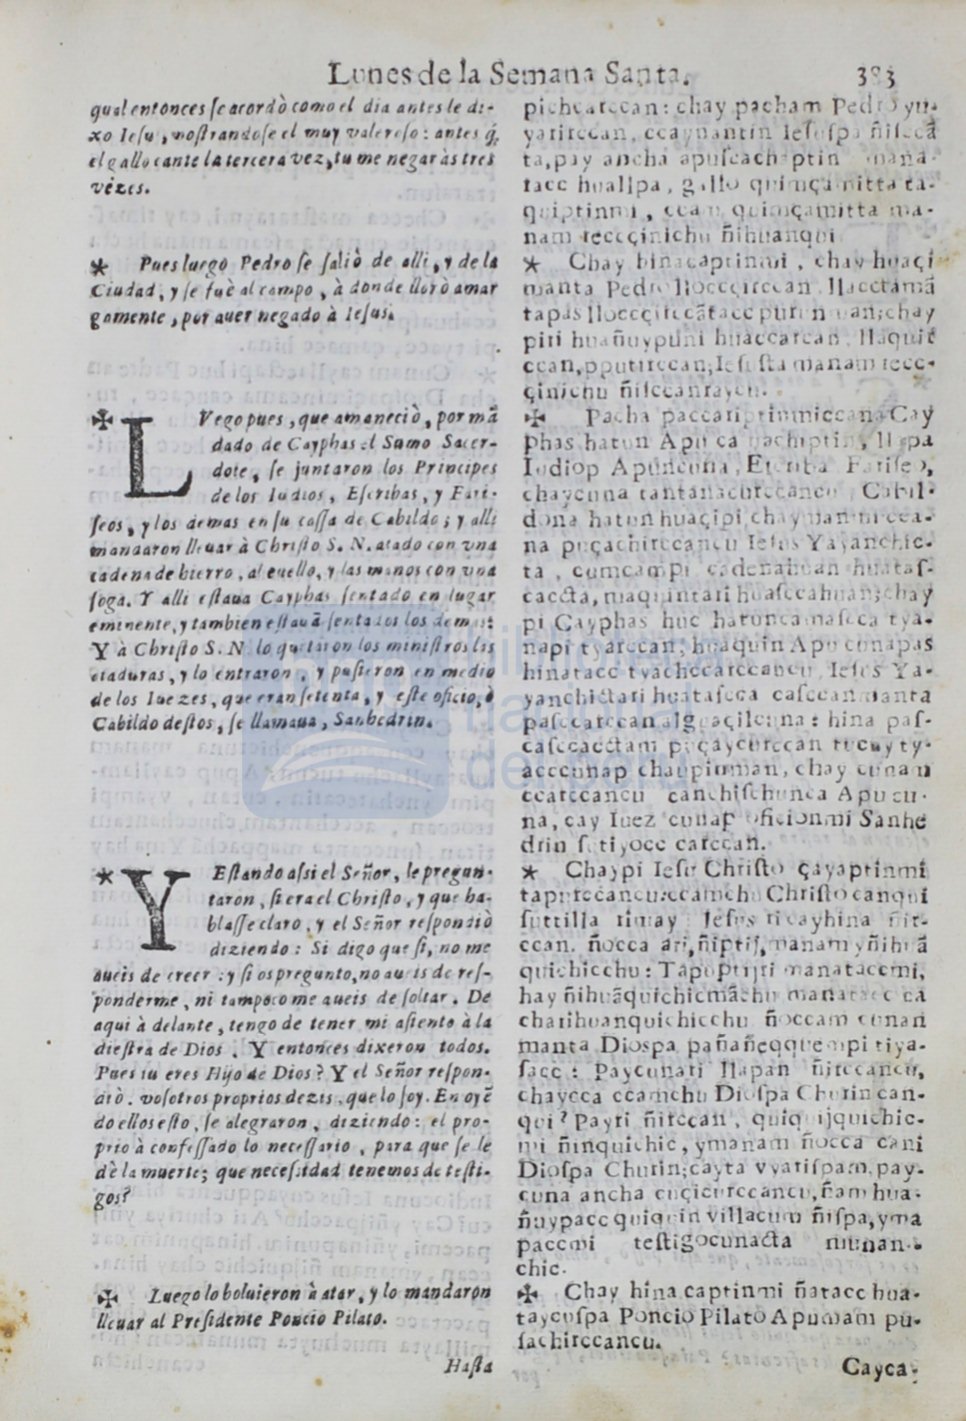 Lunes de la Semana Santa. 303
qual entonces ſe acordò como el dia antes le di-
xo Ieſu, moſtrandoſe el muy valeroſo: antes q̃
el gallo cante la tercera vez, tu me negaràs tres
vèzes.
* Pues luego Pedro ſe ſaliò de alli, y de la
Ciudad, y ſe fuè al campo, à donde llorò amar
gamente, por auer negado à Ieſus.
✠ LVego pues, que amaneciò, por mã
dado de Cayphas el Sumo Sacer-
dote, ſe juntaron los Principes
de los Iudios, Eſcribas, y Fari-
ſeos, y los demas en ſu caſſa de Cabildo; y alli
mandaron lleuar à Chriſto S. N. atado con vna
cadena de hierro, al cuello, y las manos con vna
ſoga. Y alli eſtaua Cayphas ſentado en lugar
eminente, y tambien eſtauã ſentados los demas:
Y à Chriſto S. N. lo quitaron los miniſtros las
ataduras, y lo entraron, y puſieron en medio
de los Iuezes, que eran ſetenta, y eſte oficio, ò
Cabildo deſtos, ſe llamaua, Sanhedrin.
* YEſtando aſsi el Señor, le pregun-
taron, ſi era el Chriſto, y que ha-
blaſſe claro, y el Señor reſpondiò
diziendo: Si digo que ſi, no me
aueis de creer: y ſi os pregunto, no aueis de reſ-
ponderme, ni tampoco me aueis de ſoltar. De
aqui à delante, tengo de tener mi aſiento à la
dieſtra de Dios. Y entonces dixeron todos.
Pues tu eres Hijo de Dios? Y el Señor reſpon-
diò. voſotros proprios dezis, que lo ſoy. En oyẽ
do ellos eſto, ſe alegraron, diziendo: el pro-
prio à confeſſado lo neceſſario, para que ſe le
dè la muerte; que neceſsidad tenemos de teſti-
gos?
✠ Luego lo boluieron à atar, y lo mandaron
lleuar al Preſidente Poncio Pilato.
Haſta
picheatccan: chay pacham Pedro yu-
yarirccan, ccaynantin Ieſuſpa ñiſccã
ta, pay ancha apuſcachaptin mana
tacc huallpa, gallo quimça mitta ta-
quiptinmi, ccam quimçamitta ma-
nam reccçinichu ñihuanqui
* Chay hinacaptinmi, chay huaçi
manta Pedro lloccçirccan llacctamã
tapas lloccçirccãtacc purun man; chay
piri huañuypuni huaccarcan, llaquir
ccan, pputirccan, Ieſuſta manam recc-
çinichu ñiſccanraycu.
✠ Pacha paccarip tinmiccana Cay
phas hatun Apu ca machiptin, llapa
Iudiop Apuncuna, Eſcriba Fariſeo,
chaycuna tantanacurccancu Cabil-
dona hatun huaçipi, chaymanmi cca-
na puçachirccancu Ieſus Yayanchic-
ta, cumcampi cadenahuan huataſ-
caccta, maquintari huaſccahuan; chay
pi Cayphas huc hatun camaſcca tya-
napi tyarccan; huaquin Apucunapas
hinatacc tyachccarccancu Ieſus Ya-
yanchictari huataſcca caſccanmanta
paſccarccan alguaçilcuna: hina paſ-
caſccacctam puçaycurccan tucuy ty-
acccunap chaupinman, chay cunam
ccarccancu canchiſchunca Apucu-
na, cay Iuez cunap oficionmi Sanhe
drin ſutiyocc carccan.
* Chaypi Ieſu Chriſto çayaptinmi
tapurccancu: ccamchu Chriſto canqui
ſuttilla rimay Ieſus ricayhina ñir-
ccan. ñocca ari, ñiptij, manam yñihuã
quichicchu: Tapuptijri manataccmi,
hay ñihuãquichicmãchu manatacc ca
charihuanquichicchu ñoccam cunan
manta Dioſpa pañañeqquempi tiya-
ſacc: Paycunari llapan ñirccancu,
chaycca ccamchu Dioſpa Churin can-
qui? Payri ñirccan, quiquijquichic-
mi ñinquichic, ymanam ñocca cani
Dioſpa Churin; cayta vyariſpam, pay-
cuna ancha cuçicurccancu, ñam hua-
ñuypacc quiquin villacum ñiſpa, yma
paccmi teſtigocunaćta munan-
chic.
✠ Chay hina captinmi ñatacc hua-
taycuſpa Poncio Pilato Apumam pu-
ſachirccancu.
Cayca-